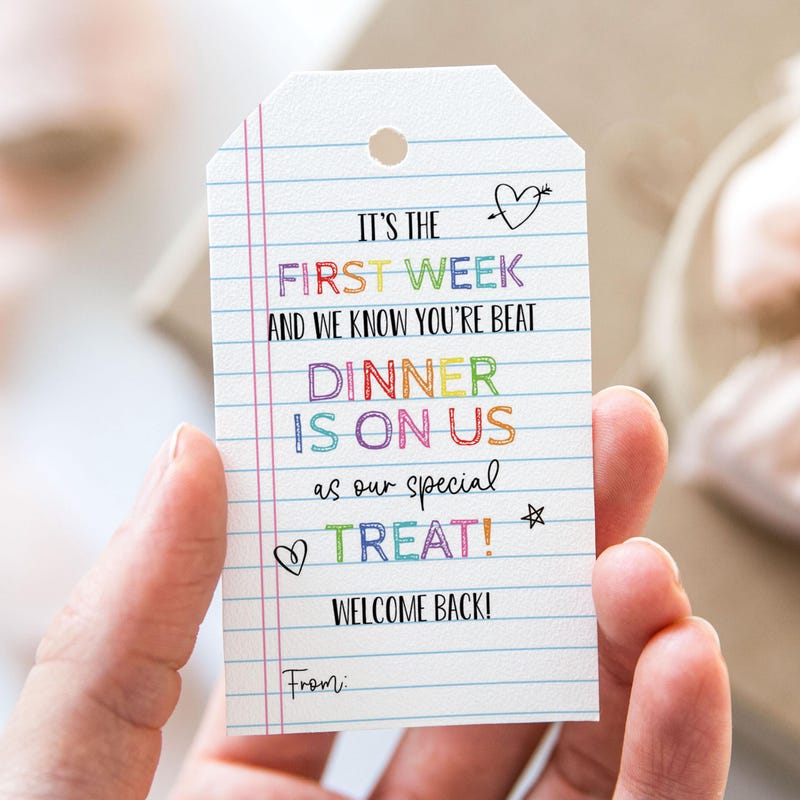 IT'S THE
FIRST WEEK
AND WE KNOW YOU'RE BEAT
DINNER
IS ON US
as our special
TREAT!
WELCOME BACK!
From: